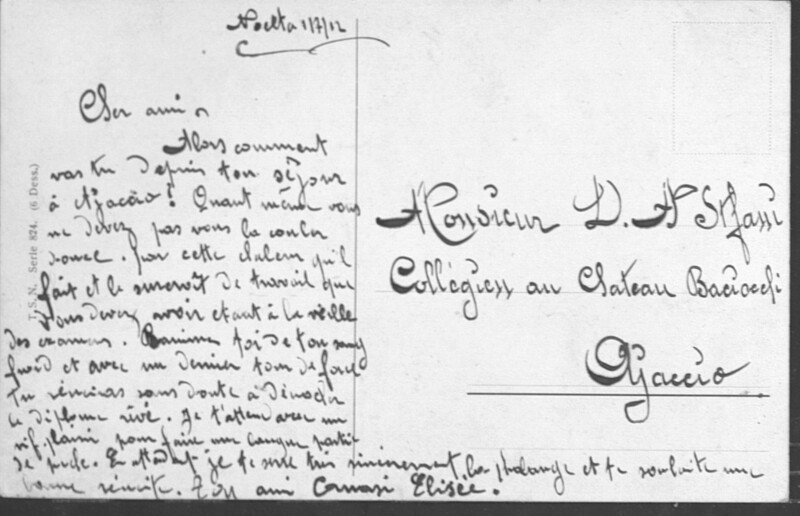 Nocita 1/7/12
Cher ami
Alors comment
vas tu depuis ton séjour
à Ajaccio? Quant même vous
ne devez pas vous la couler
douce. par cette chaleur qu'il
fait et le surcroît de travail que
vous devez avoir etant à la veille
des examens. toi de ton sang
froid et avec un dernier tour de force
tu réussiras sans doute à
ce diplome rêvé. Je t'attend avec un
vif plaisir pour faire une longue partie
de In attendant je te serre très sincèrement la phalange et te souhaite une
bonne réussite. Ton ami Elisée.
T. S. N. Serie 824. (6 Dess.)
Monsieur D. A
Collégien au Chateau Baciocchi
Ajaccio